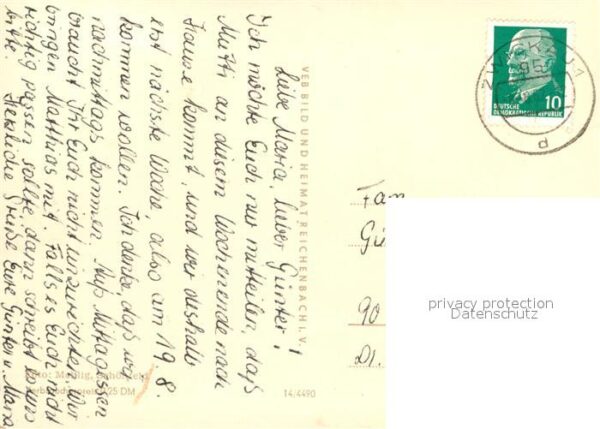 Liebe Maria, lieber Günter!
Ich möchte Euch nur mitteilen, daß
Mutti an diesem Wochenende nach
Hause kommt, und wir deshalb
erst nächste Woche, also am 19.8.
kommen wollen. Ich denke daß wir
nachmittags kommen. Auf Mittagessen
braucht Ihr Euch nicht einzurichten. Wir
bringen Matthias mit. Falls es Euch nicht
richtig passen sollte, dann schreibt uns
bitte. Herzliche Grüße Eure Günter u. Maria
Foto: Schönfeld
Verbraucherpreis 0,25 DM
VEB BILD UND HEIMAT REICHENBACH I. V.
14/4490
ZWICKAU 1
95
d
10
DEUTSCHE
DEMOKRATISCHE REPUBLIK
Fam.
Gü
90
privacy protection
Datenschutz